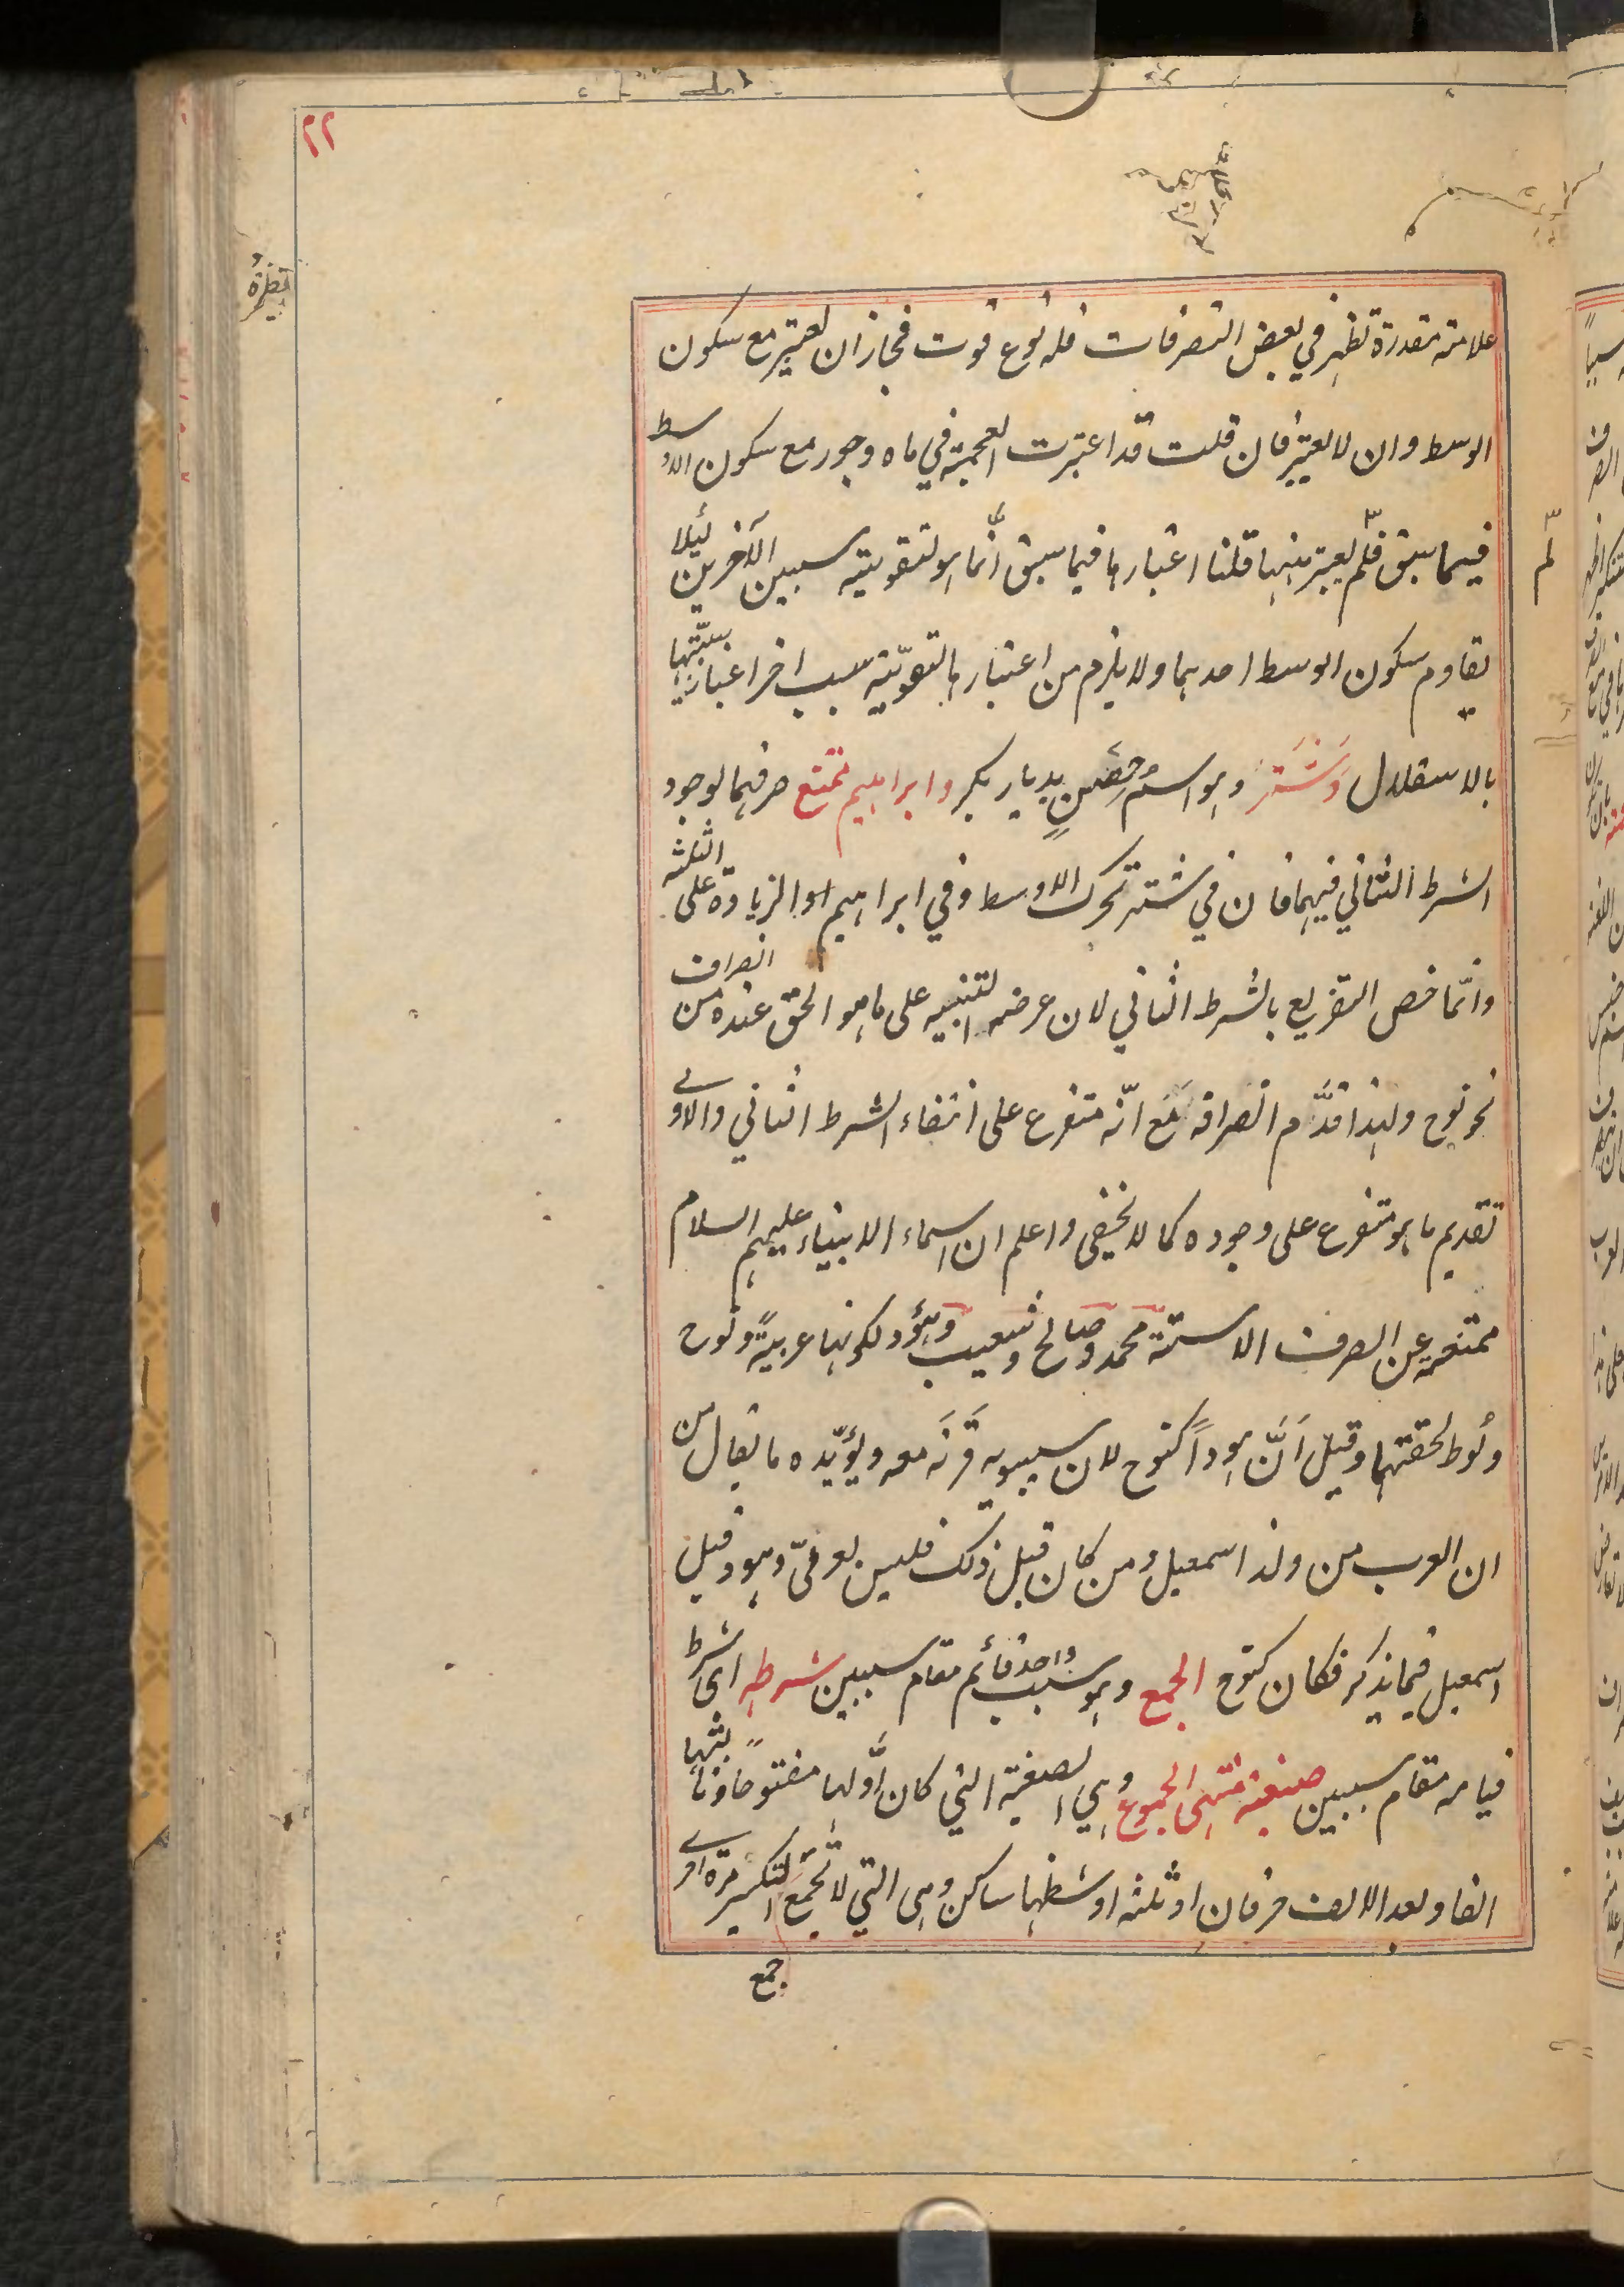 ٢٢
علامة مقدرة تظهر في بعض التصرفات فله نوع قوت فجاز ان يعتبر مع سكون
الوسط وان لا يعتبر فان قلت قد اعتبرت العجمة في ماه وجور مع سكون الاوسط
فيما سبق فلم لم يعتبر ههنا قلنا اعتبارها فيما سبق انّما هو لتقوية سببين الآخرين لئلا
يقاوم سكون الوسط احدهما ولا يلزم من اعتبارها لتقويّة سبب اخر اعتبار سببيّتها
بالاستقلال وَشَتَر وهو اسم حِصْنٍ بديار بكر وابراهيم ممتنع صرفهما لوجود
الشرط الثاني فيهما فان في شتر تحرك الاوسط وفي ابراهيم الزيادة على الثلثة
وانّما خص التفريع بالشرط الثاني لان غرضه التنبيه على ما هو الحق عنده من انصراف
نحو نوح ولهذا قدَّم انصرافه مَع انّه متفرع على انتفاء الشرط الثاني والاولى
تقديم ما هو متفرع على وجوده كما لا يخفى واعلم ان اسماء الانبياء عليهم السلام
ممتنعة عن الصرف الا ستة محمد وصالح وشعيب وهُوْد لكونها عربيةً ونوح
ولوط لخفتهما وقيل اَنَّ هوداً كنوح لان سيبويه قَرَنَه معه ويؤيّده ما يقال من
ان العرب من ولد اسمعيل ومن كان قبل ذلك فليس بعربيّ وهود قبل
اسمعيل فيما يذكر فكان كنوح الجمع وهو سبب واحد قائم مقام سببين شرطه اى شرط
قيامه مقام سببين صيغة منتهى الجموع وهي الصيغة التي كان اَوَّلها مفتوحا وثالثها
الفا وبعد الالف حرفان او ثلثة اوسطها ساكن وهى التي لا تُجْمَع التكسير مرة اخرى
جمع
لم